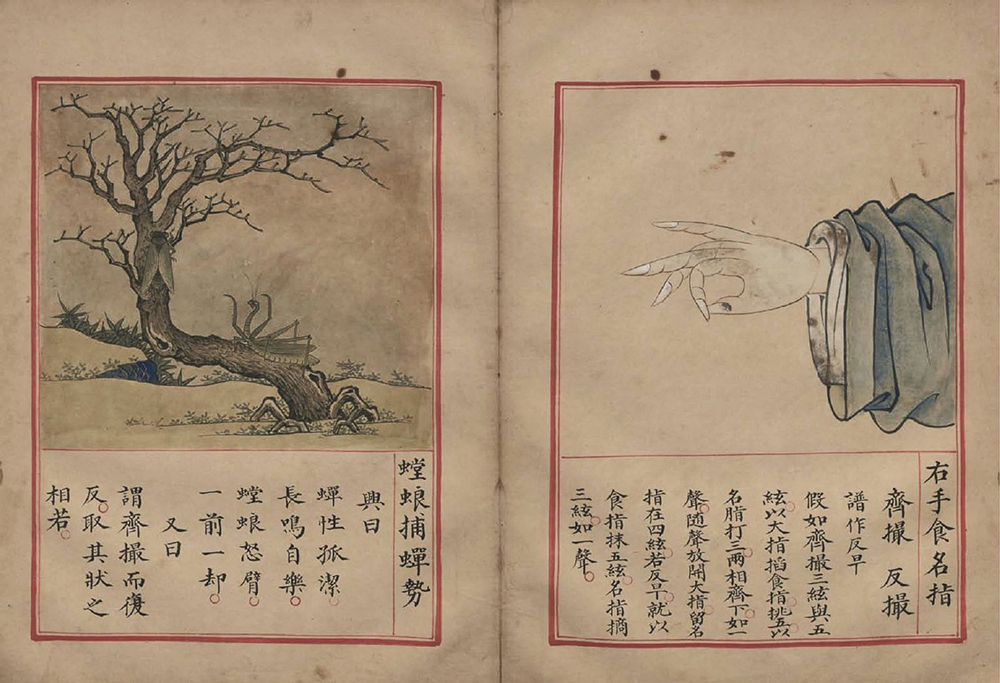 右手食名指
齊撮 反撮
譜作反早
假如齊撮三絃與五
絃以大指搯食指挑五以
名指打三兩相齊下如一
聲随聲放開大指留名
指在四絃若反早就以
食指抹五絃名指摘
三絃如一聲
螳蜋捕蟬勢
興曰
蟬性孤潔
長鳴自樂
螳蜋怒臂
一前一却
又曰
謂齊撮而復
反取其狀之
相若